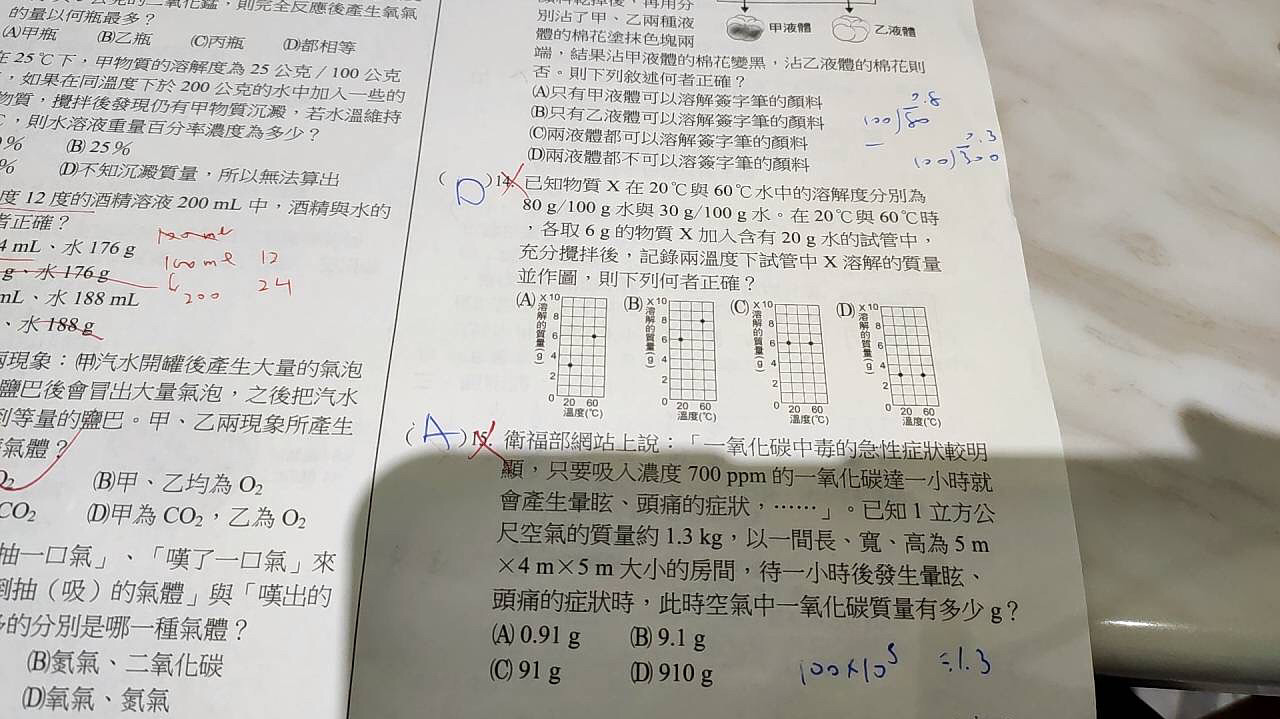 的量以何瓶最多？
(A)甲瓶 (B)乙瓶 (C)丙瓶 (D)都相等
在 25℃下，甲物質的溶解度為 25 公克／100 公克
，如果在同溫度下於 200 公克的水中加入一些的
物質，攪拌後發現仍有甲物質沉澱，若水溫維持
，則水溶液重量百分率濃度為多少？
% (B) 25%
% (D)不知沉澱質量，所以無法算出
度 12 度的酒精溶液 200 mL 中，酒精與水的
者正確？
4 mL、水 176 g
g、水 176 g
mL、水 188 mL
、水 188 g
100ml 12
200 24
兩現象：(甲)汽水開罐後產生大量的氣泡
鹽巴後會冒出大量氣泡，之後把汽水
到等量的鹽巴。甲、乙兩現象所產生
氣體？
(B)甲、乙均為 O₂
CO₂ (D)甲為 CO₂，乙為 O₂
抽一口氣」、「嘆了一口氣」來
倒抽（吸）的氣體」與「嘆出的
多的分別是哪一種氣體？
(B)氮氣、二氧化碳
(D)氧氣、氮氣
甲液體 乙液體
別沾了甲、乙兩種液
體的棉花塗抹色塊兩
端，結果沾甲液體的棉花變黑，沾乙液體的棉花則
否。則下列敘述何者正確？
(A)只有甲液體可以溶解簽字筆的顏料
(B)只有乙液體可以溶解簽字筆的顏料
(C)兩液體都可以溶解簽字筆的顏料
(D)兩液體都不可以溶簽字筆的顏料
0.8
100)80
0.3
100)300
( D )14. 已知物質 X 在 20℃與 60℃水中的溶解度分別為
80 g/100 g 水與 30 g/100 g 水。在 20℃與 60℃時
，各取 6 g 的物質 X 加入含有 20 g 水的試管中，
充分攪拌後，記錄兩溫度下試管中 X 溶解的質量
並作圖，則下列何者正確？
(A) X溶解的質量(g) 10 8 6 4 2 0 20 60 溫度(℃)
(B) X溶解的質量(g) 10 8 6 4 2 0 20 60 溫度(℃)
(C) X溶解的質量(g) 10 8 6 4 2 0 20 60 溫度(℃)
(D) X溶解的質量(g) 10 8 6 4 2 0 20 60 溫度(℃)
( A )15. 衛福部網站上說：「一氧化碳中毒的急性症狀較明
顯，只要吸入濃度 700 ppm 的一氧化碳達一小時就
會產生暈眩、頭痛的症狀，……」。已知 1 立方公
尺空氣的質量約 1.3 kg，以一間長、寬、高為 5 m
×4 m×5 m 大小的房間，待一小時後發生暈眩、
頭痛的症狀時，此時空氣中一氧化碳質量有多少 g？
(A) 0.91 g (B) 9.1 g
(C) 91 g (D) 910 g